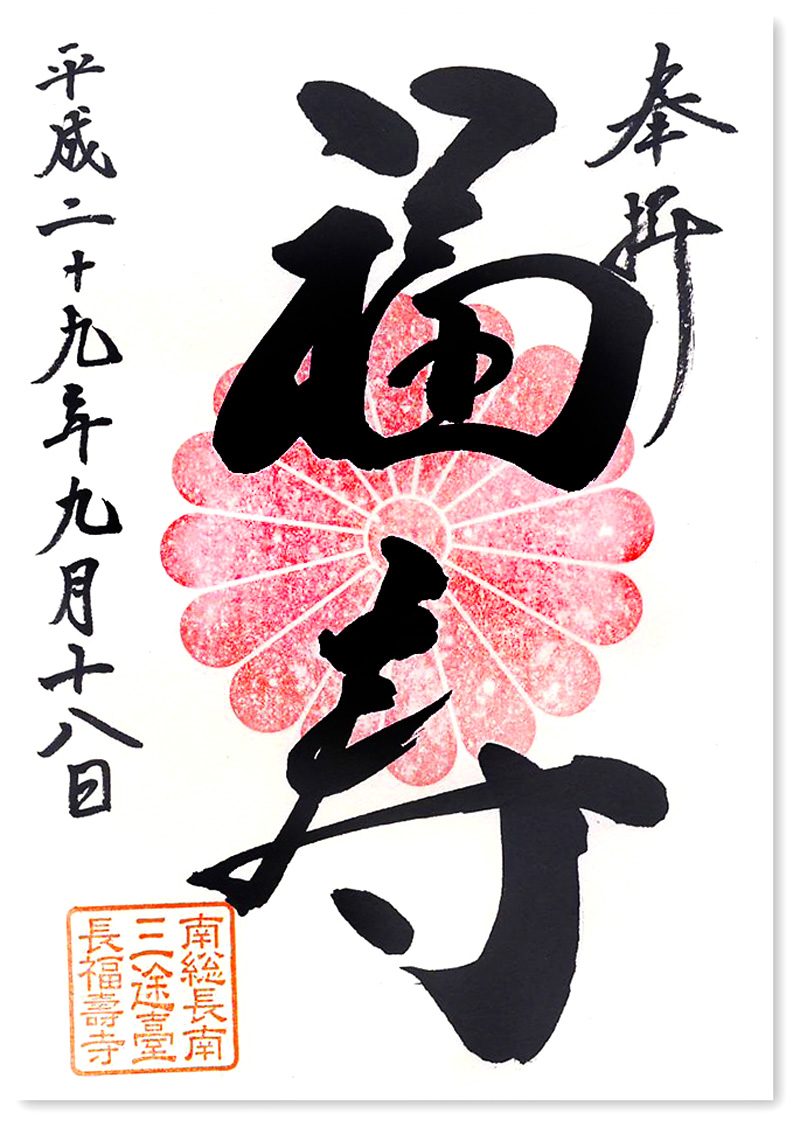 奉拝
福寿
平成二十九年九月十八日
南総長南
三途臺
長福壽寺